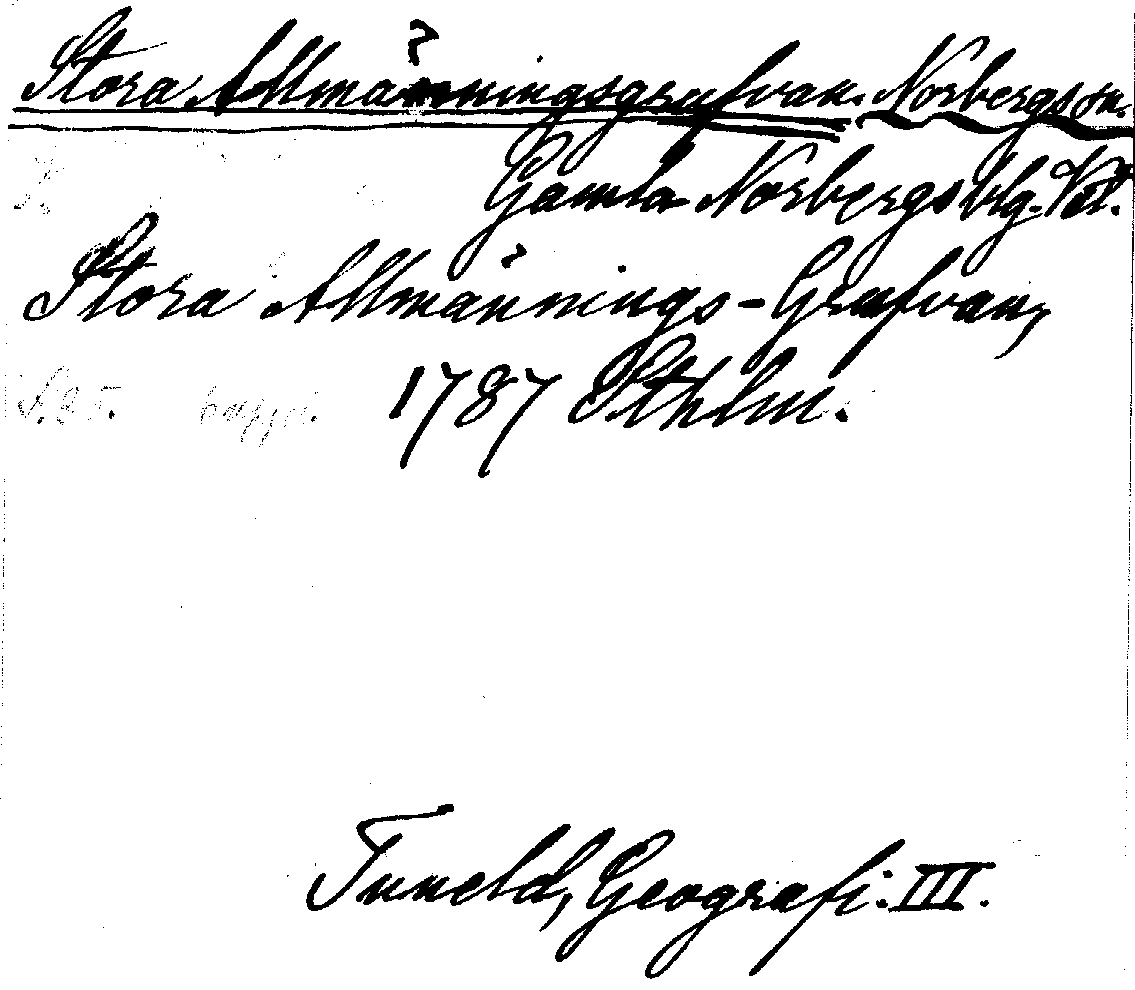 Stora Allmänningsgrufvan. Norbergs sn.
Gamla Norbergs blg. Vstl.
Stora Allmännings-Grufvan,
1787 Sthlm.
Tuneld, Geografi. III.